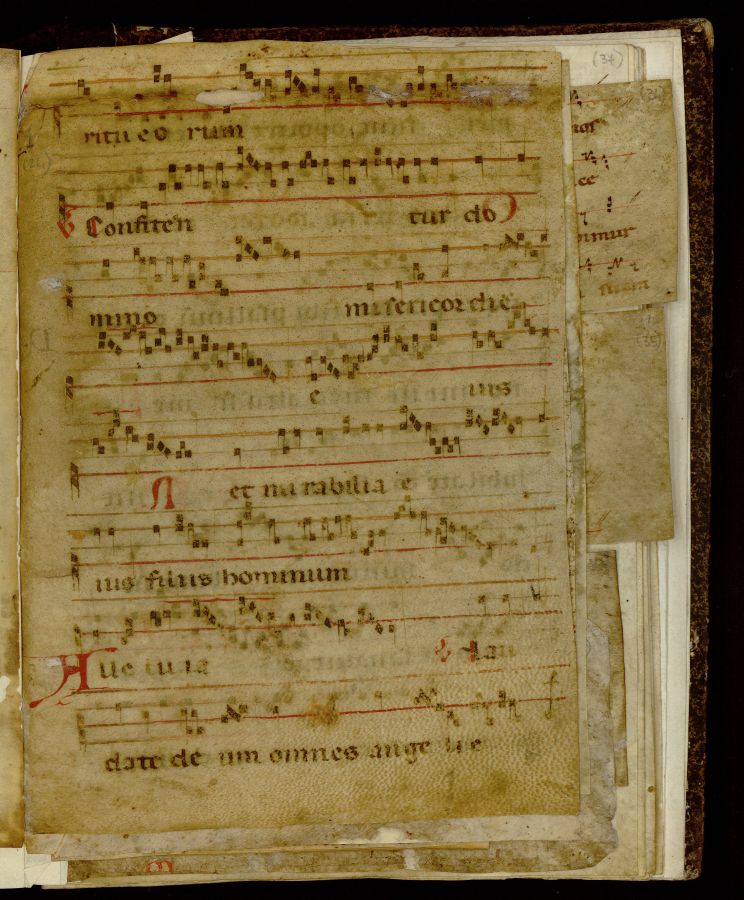 (34)
ritu eo rum
Confiten tur do
mino misericordie
e ius
et mirabilia e
ius filiis hominum
Alle lu ia Lau
date de um omnes ange li e